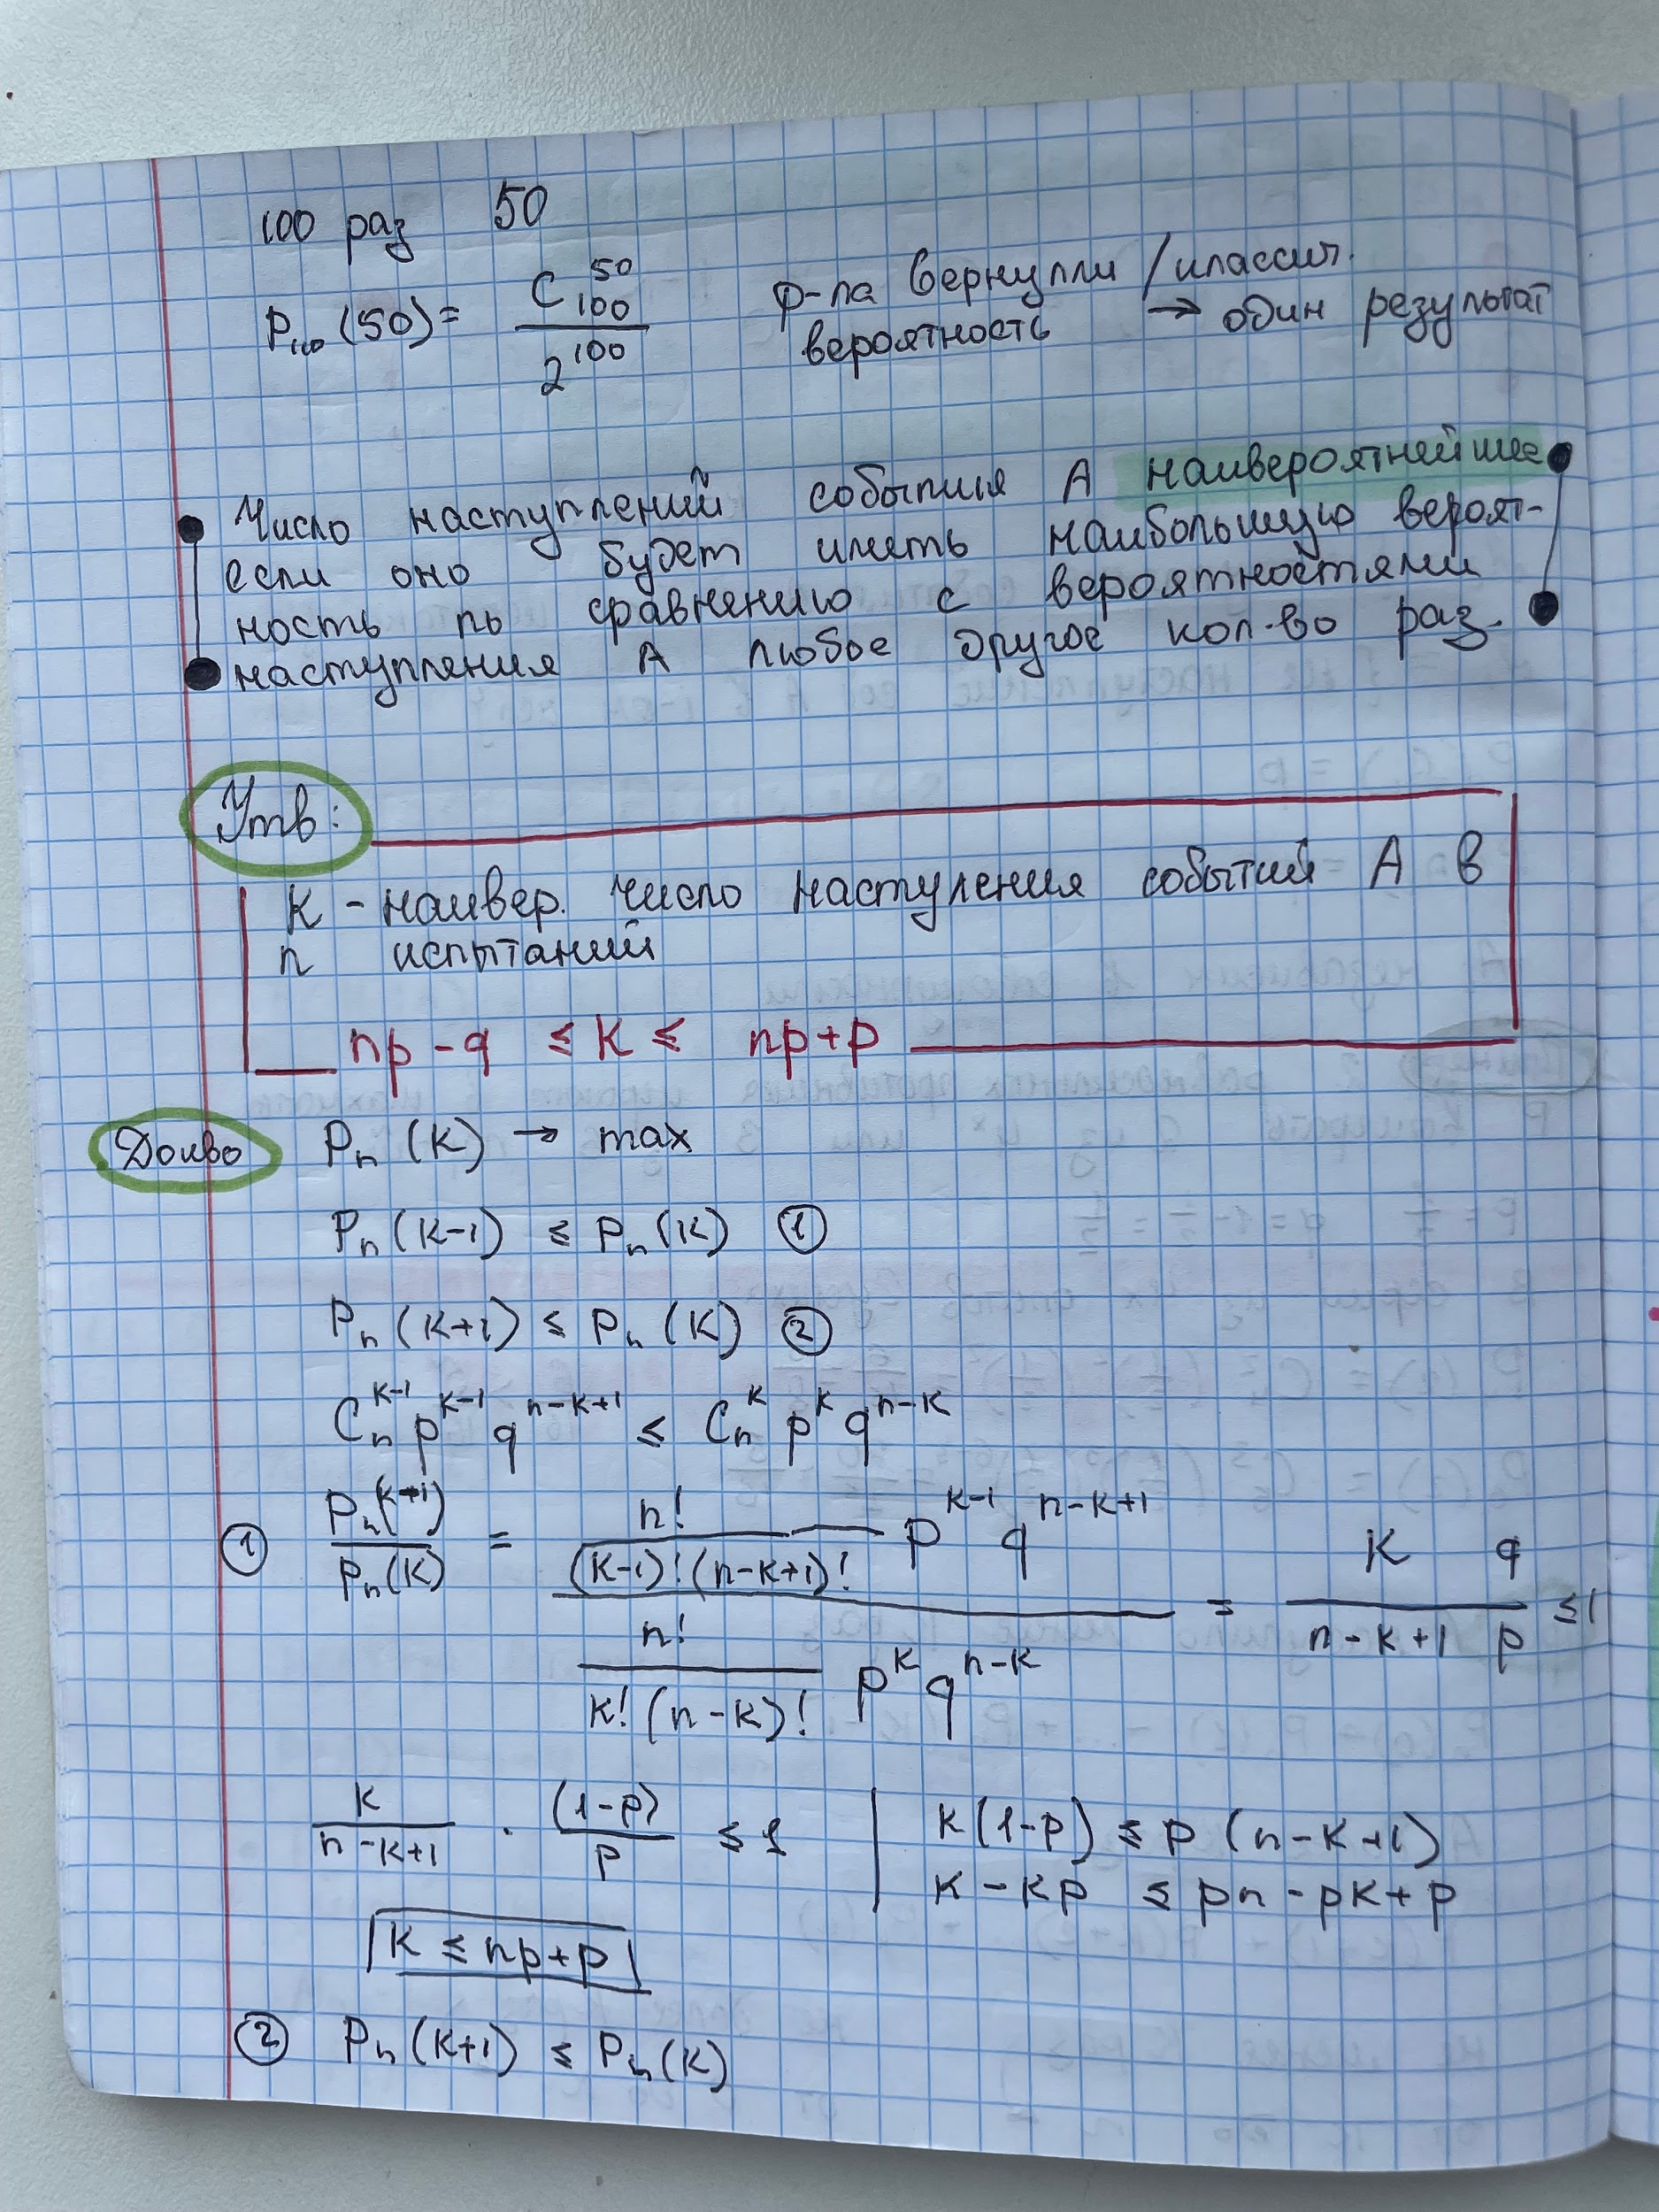 100 раз 50
P₁₀₀(50) = C₁₀₀⁵⁰ / 2¹⁰⁰
ф-ла Вернулли / классич.
вероятность → один результат
Число наступлений события A наивероятнейшее
если оно будет иметь наибольшую вероят-
ность по сравнению с вероятностями
наступления A любое другое кол-во раз.
Утв:
K - наивер. число наступления событий A в
n испытаний
np - q ≤ K ≤ np + p
Док-во Pₙ(K) → max
Pₙ(K-1) ≤ Pₙ(K) ①
Pₙ(K+1) ≤ Pₙ(K) ②
Cₙᴷ⁻¹ pᴷ⁻¹ qⁿ⁻ᴷ⁺¹ ≤ Cₙᴷ pᴷ qⁿ⁻ᴷ
① Pₙ(K-1) / Pₙ(K) = (n! / ((K-1)! (n-K+1)!) pᴷ⁻¹ qⁿ⁻ᴷ⁺¹) / (n! / (K! (n-K)!) pᴷ qⁿ⁻ᴷ) = K q / (n-K+1 p) ≤ 1
K / (n-K+1) · (1-p) / p ≤ 1
K(1-p) ≤ p (n-K+1)
K - Kp ≤ pn - pK + p
K ≤ np + p
② Pₙ(K+1) ≤ Pₙ(K)